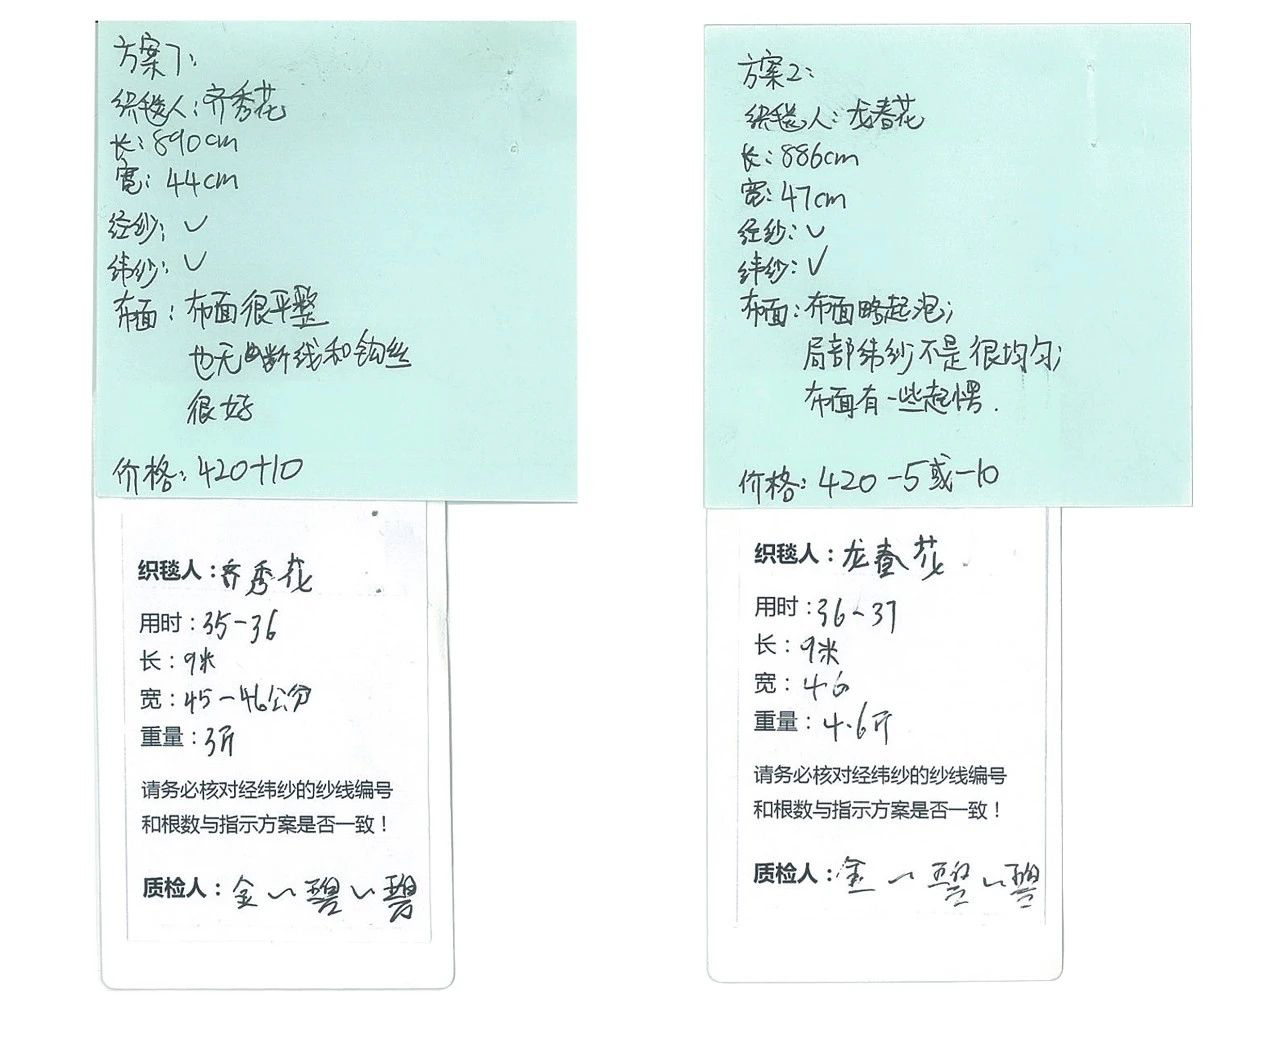 方案1:
织毯人:齐秀花
长:890cm
宽:44cm
经纱:✓
纬纱:✓
布面:布面很平整
也无断线和钩丝
很好
价格:420+10
织毯人:齐秀花
用时:35-36
长:9米
宽:45-46公分
重量:3斤
请务必核对经纬纱的纱线编号
和根数与指示方案是否一致!
质检人:金~碧~碧
方案2:
织毯人:龙春花
长:886cm
宽:47cm
经纱:✓
纬纱:✓
布面:布面略起泡;
局部纬纱不是很均匀;
布面有一些起愣.
价格:420-5或-10
织毯人:龙春花
用时:36-37
长:9米
宽:46
重量:4.6斤
请务必核对经纬纱的纱线编号
和根数与指示方案是否一致!
质检人:金